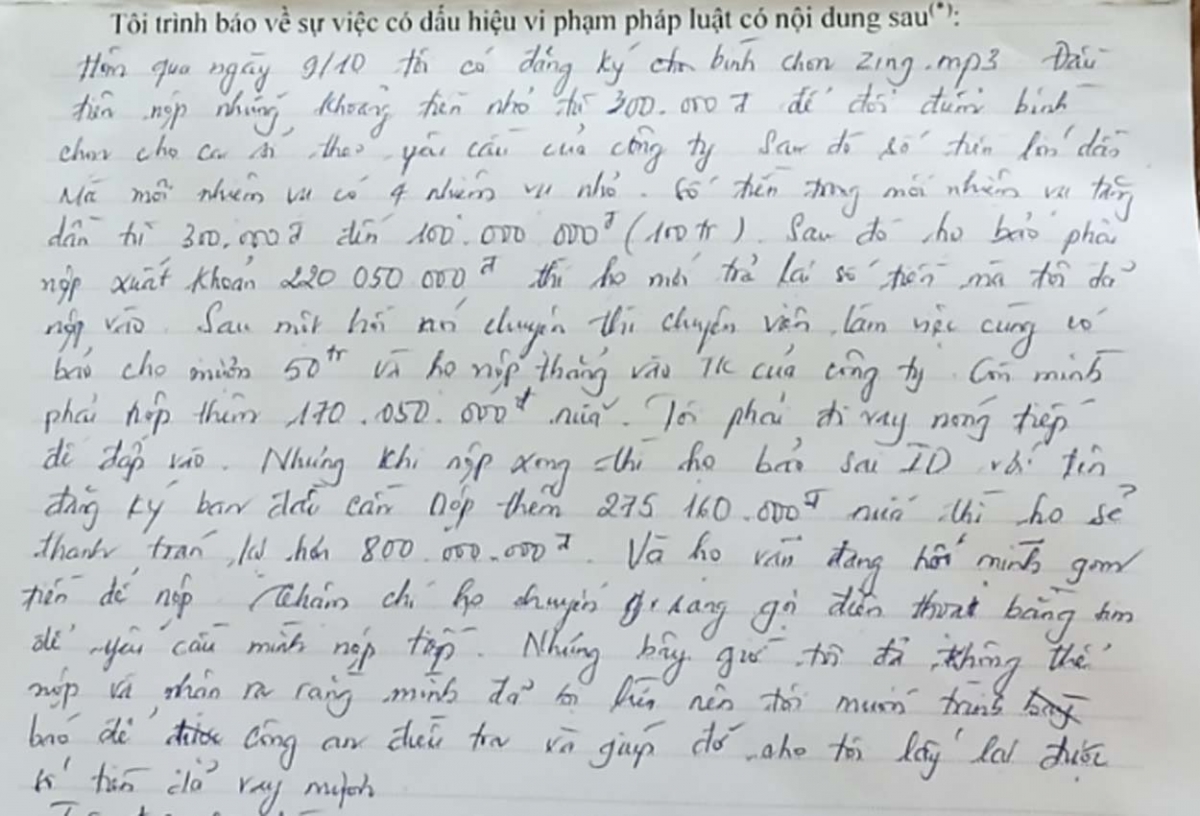 Tôi trình báo về sự việc có dấu hiệu vi phạm pháp luật có nội dung sau(*):
Hôm qua ngày 9/10 tôi có đăng ký bình chọn zing.mp3 Đầu
tiên nộp những khoảng tiền nhỏ từ 300.000đ để đổi điểm bình
chọn cho ca sĩ theo yêu cầu của công ty Sau đó số tiền lớn dần
Mà mỗi nhiệm vụ có 4 nhiệm vụ nhỏ. Số tiền trong mỗi nhiệm vụ tăng
dần từ 300.000đ đến 100.000 000đ (100tr). Sau đó họ bảo phải
nộp xuất khoản 220 050 000đ thì họ mới trả lại số tiền mà tôi đã
nộp vào. Sau một hồi nói chuyện thì chuyên viên làm việc cùng có
báo cho mượn 50tr và họ nộp thẳng vào TK của công ty. Còn mình
phải nộp thêm 170.050.000đ nữa. Tôi phải đi vay nóng tiếp
để đắp vào. Nhưng khi nộp xong thì họ bảo sai ID với tên
đăng ký ban đầu cần nộp thêm 275 160.000đ nữa thì họ sẽ
thanh toán lại hơn 800.000.000đ. Và họ vẫn đang hối mình gom
tiền để nộp Thậm chí họ chuyển gọi điện thoại bằng
để yêu cầu mình nộp tiếp. Nhưng bây giờ tôi đã không thể
nộp và nhận ra rằng mình đã bị lừa nên tôi muốn trình
báo để công an điều tra và giúp đỡ cho tôi lấy lại được
số tiền đã vay mượn